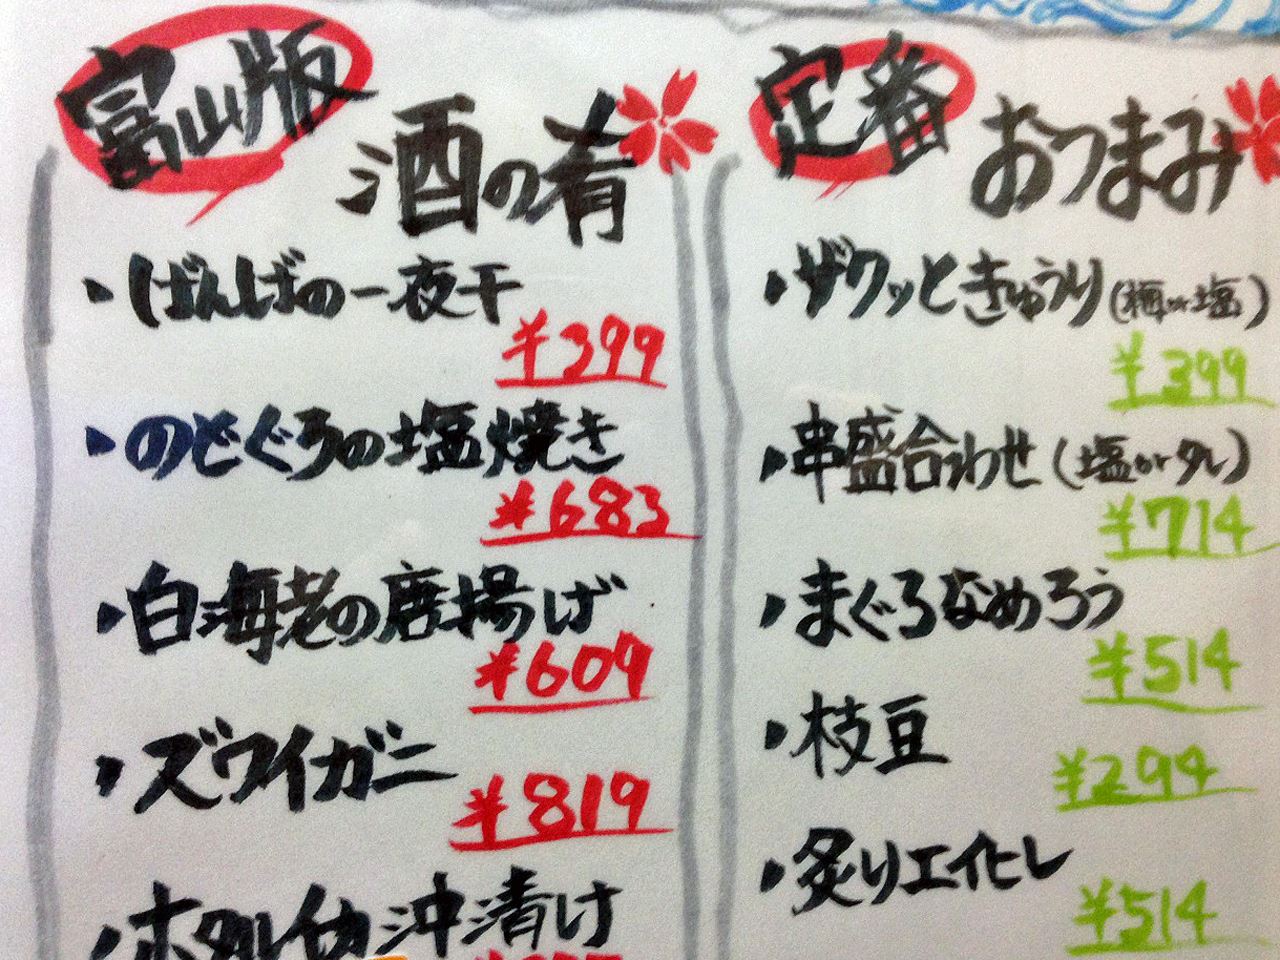 富山版
酒の肴
・ばんばの一夜干
¥399
・のどぐろの塩焼き
¥683
・白海老の唐揚げ
¥609
・ズワイガニ
¥819
・ホタルイカ沖漬け
定番
おつまみ
・ザクッときゅうり(梅or塩)
¥399
・串盛合わせ(塩orタレ)
¥714
・まぐろなめろう
¥514
・枝豆
¥294
・炙りエイヒレ
¥514